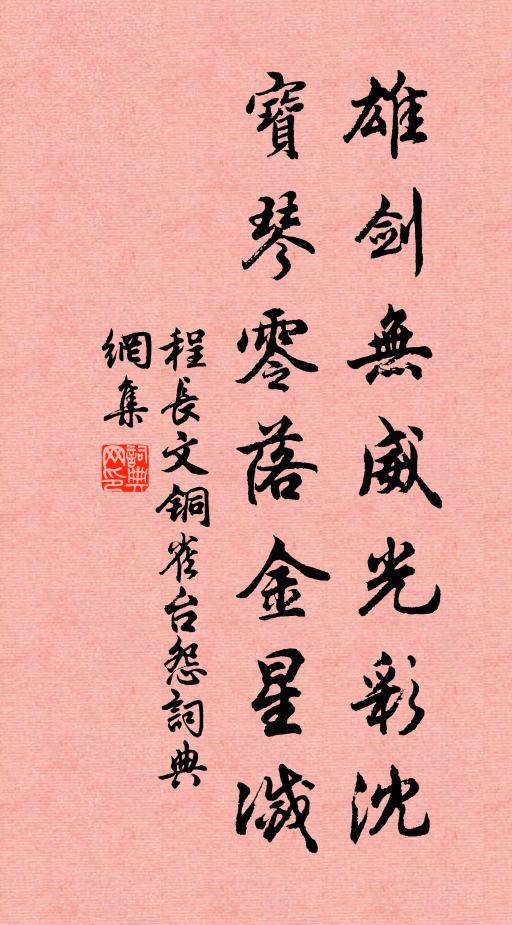 雄劍無威光彩沈
寶琴零落金星滅
程長文銅雀台怨詞典
網集
詞典網印